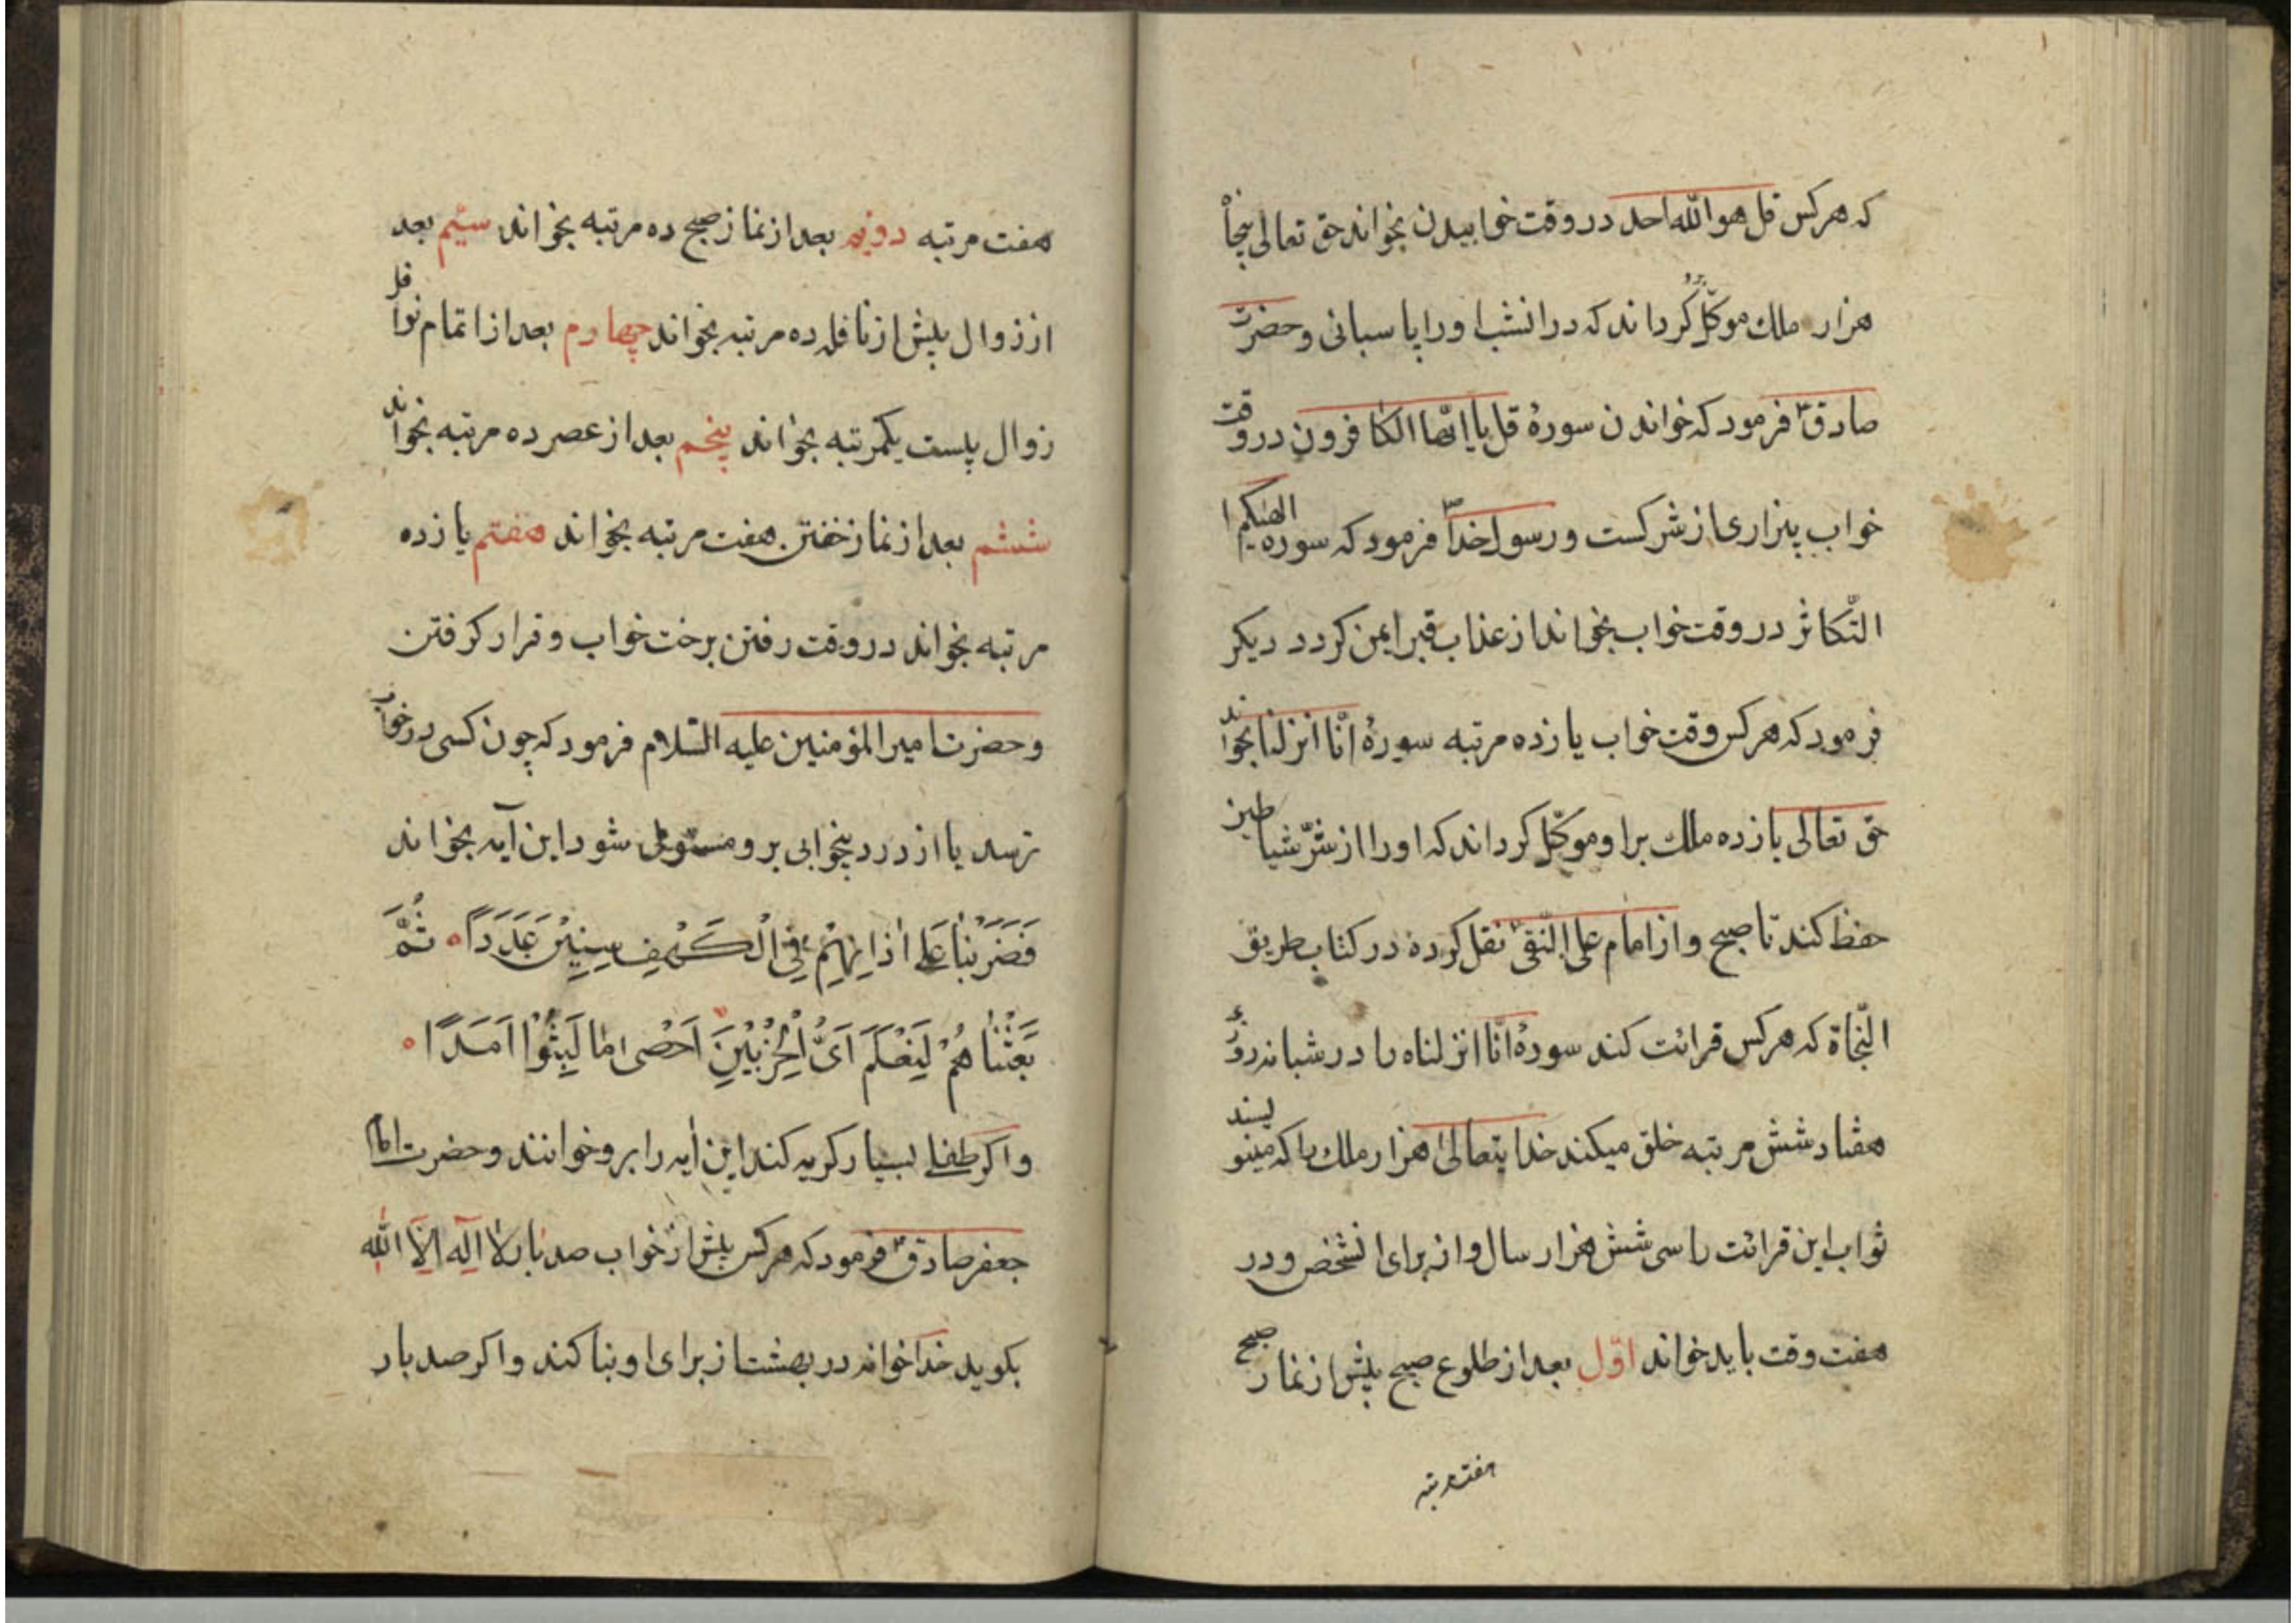 که هرکس قل هو الله احد در وقت خوابیدن بخواند حق تعالی پنجاه
هزار ملک موکّل کرداند که در انشب او را پاسبانی و حضرت
صادق ع فرمود که خواندن سورهٔ قل یا ایّها الکافرون در وقت
خواب بیزاری از شرکست و رسول خدا ص فرمود که سوره الهیکم ا
التّکاثر در وقت خواب بخواند از عذاب قبر ایمن کردد دیکر
فرمود که هرکس وقت خواب یازده مرتبه سورهٔ انّا انزلنا بخواند
حق تعالی یازده ملک بر او موکّل کرداند که او را از شرّ شیاطین
حفظ کند تا صبح و از امام علی النّقی ع نقل کرده در کتاب طریق
النّجاة که هرکس قرائت کند سورهٔ انّا انزلناه را در شبانه روز
هفتاد شش مرتبه خلق میکند خدایتعالی هزار ملک را که مینویسند
ثواب این قرائت را سی شش هزار سال از برای انشخص و در
هفت وقت باید خواند اوّل بعد از طلوع صبح پیش از نماز صبح
هفت مرتبه
هفت مرتبه دویم بعد از نماز صبح ده مرتبه بخواند سیّم بعد
از زوال پیش از نافله ده مرتبه بخواند چهارم بعد از اتمام نوافل
زوال بیست یکمرتبه بخواند پنجم بعد از عصر ده مرتبه بخواند
ششم بعد از نماز خفتن هفت مرتبه بخواند هفتم یازده
مرتبه بخواند در وقت رفتن برخت خواب و قرار کرفتن
و حضرت امیر المؤمنین علیه السّلام فرمود که چون کسی در خواب
ترسد یا از درد بیخوابی برو مستولی شود این آیه بخواند
فَضَرَبْنٰا عَلیٰ اٰذٰانِهِمْ فِی الْکَهْفِ سِنِینَ عَدَدًا ثُمَّ
بَعَثْنٰاهُمْ لِنَعْلَمَ اَیُّ الْحِزْبَیْنِ اَحْصیٰ لِمٰا لَبِثُوْا اَمَدًا
و اکر طفلی بسیار کریه کند این اٰیه را برو خوانند و حضرت امام
جعفر صادق ع فرمود که هرکس پیش از خواب صد بار لا اله الا الله
بکوید خدا خوانه در بهشت از برای او بنا کند و اکر صد بار